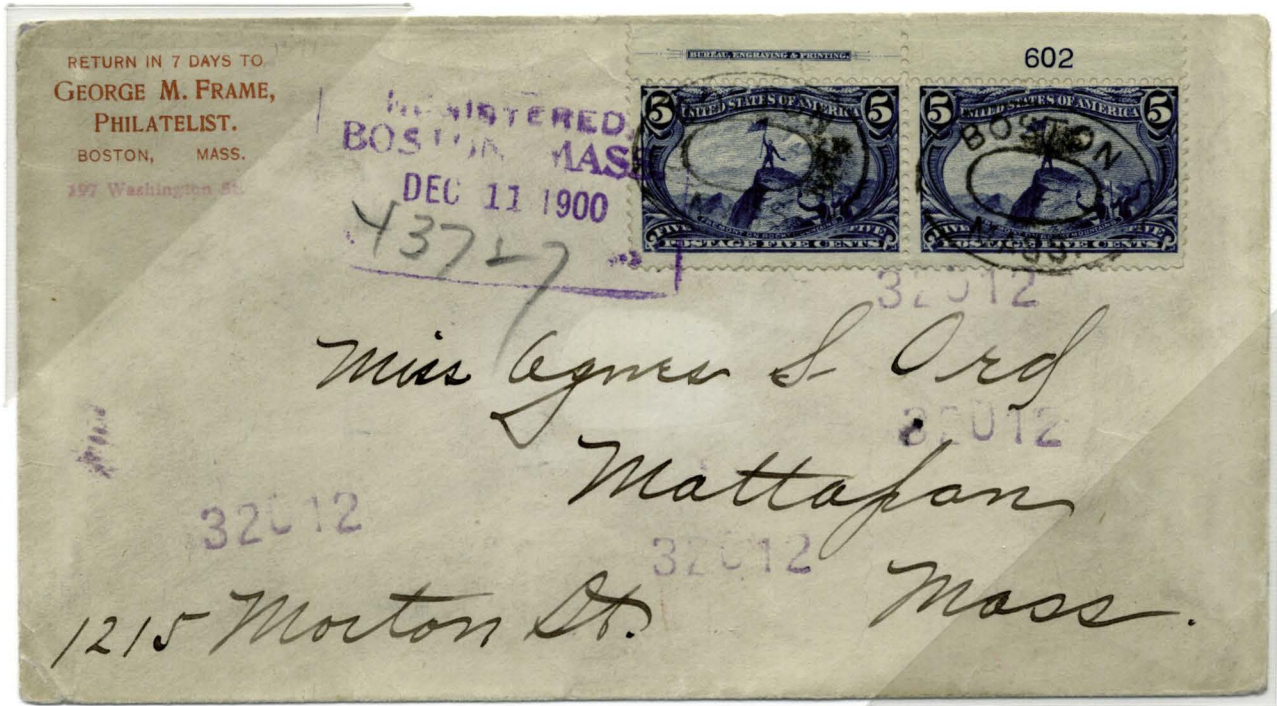 RETURN IN 7 DAYS TO
GEORGE M. FRAME,
PHILATELIST.
BOSTON, MASS.
197 Washington St.
REGISTERED
BOSTON, MASS
DEC 11 1900
43727
BUREAU, ENGRAVING & PRINTING.
602
5 UNITED STATES OF AMERICA 5
FIVE FIVE
POSTAGE FIVE CENTS
5 UNITED STATES OF AMERICA 5
BOSTON
FIVE FIVE
POSTAGE FIVE CENTS
32012
Miss Agnes S Ord
32012
Mattapan
32012
32012
Mass.
1215 Morton St.